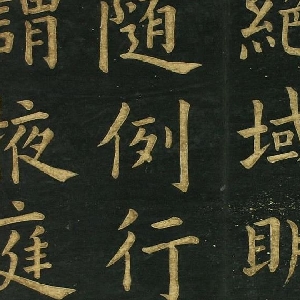 絕域明
隨例行
謂掖庭